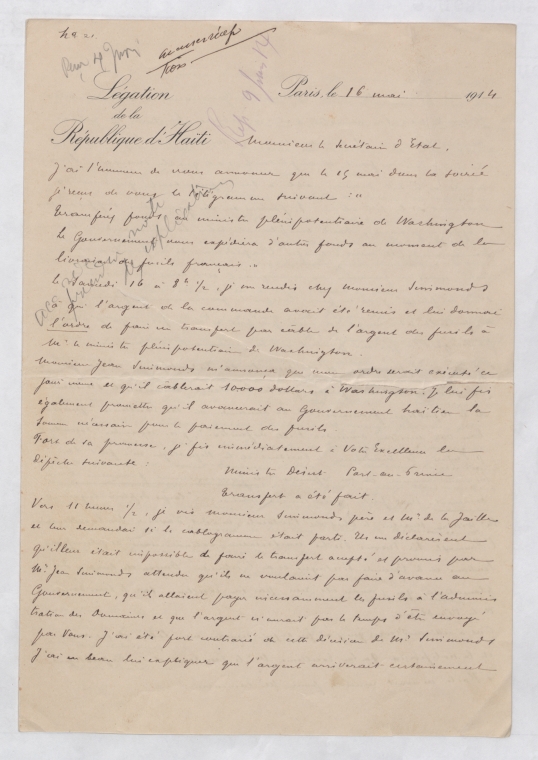 Légation
de la
République d'Haïti
Paris, le 16 mai 1914
Monsieur le Secrétaire d'Etat,
J'ai l'honneur de vous annoncer que le 15 mai dans la soirée
je reçus de vous le télégramme suivant : "
Transférez fonds au ministre plénipotentiaire de Washington
Le Gouvernement vous expédiera d'autres fonds au moment de la
livraison des fusils français. "
Le Samedi 16 à 8h 1/2, je me rendis chez Monsieur Simmonds
à qui l'argent de la commande avait été remis et lui donnai
l'ordre de faire un transfert par câble de l'argent des fusils à
Mr le ministre plénipotentiaire de Washington.
Monsieur Jean Simmonds m'annonça que mon ordre serait exécuté ce
jour même et qu'il câblerait 10000 dollars à Washington. Je lui fis
également promettre qu'il avancerait au Gouvernement haïtien la
somme nécessaire pour le paiement des fusils
Fort de sa promesse, je fis immédiatement à Votre Excellence la
dépêche suivante :
Ministre Port-au-Prince
Transfert a été fait.
Vers 11 heures 1/2, je vis Monsieur Simmonds père et Mr de la
et leur demandai si le cablogramme était parti. Ils me déclarèrent
qu'il leur était impossible de faire le transfert accepté et promis par
Mr Jean Simmonds attendu qu'ils ne voulaient pas faire d'avance au
Gouvernement, qu'ils allaient payer incessamment les fusils à l'adminis
tration des Domaines et que l'argent n'aurait pas le temps d'être envoyé
par Vous. J'ai été fort contrarié de cette décision de Mr Simmonds
J'ai eu beau lui expliquer que l'argent arriverait certainement